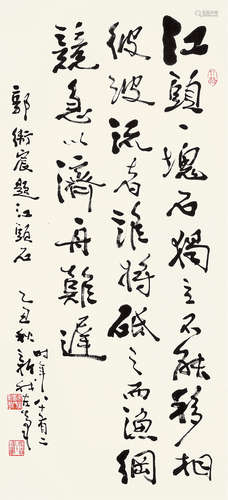 江頭一塊石獨立不能移相
彼波流者誰將砥之而漁綱
競急以濟舟難遲
郭術宸題江頭石
乙丑秋
時年八十有二